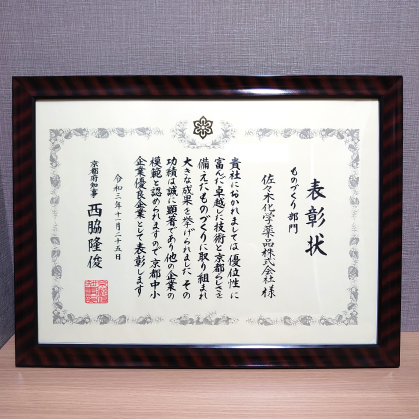 表彰状
ものづくり部門
佐々木化学薬品株式会社 様
貴社におかれましては 優位性に
富んだ卓越した技術と京都らしさを
備えたものづくりに取り組まれ
大きな成果を挙げられました その
功績は誠に顕著であり他の企業の
模範と認められますので 京都中小
企業優良企業として表彰します
令和三年十一月二十五日
京都府知事 西脇隆俊